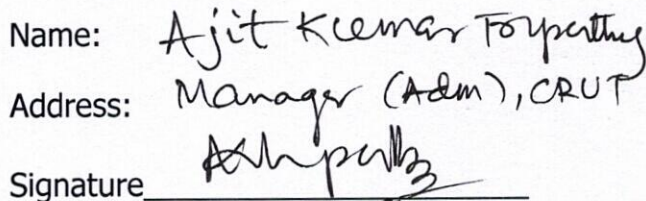 Name: Ajit Kumar Tripathy
Address: Manager (Adm), CRUT
Signature